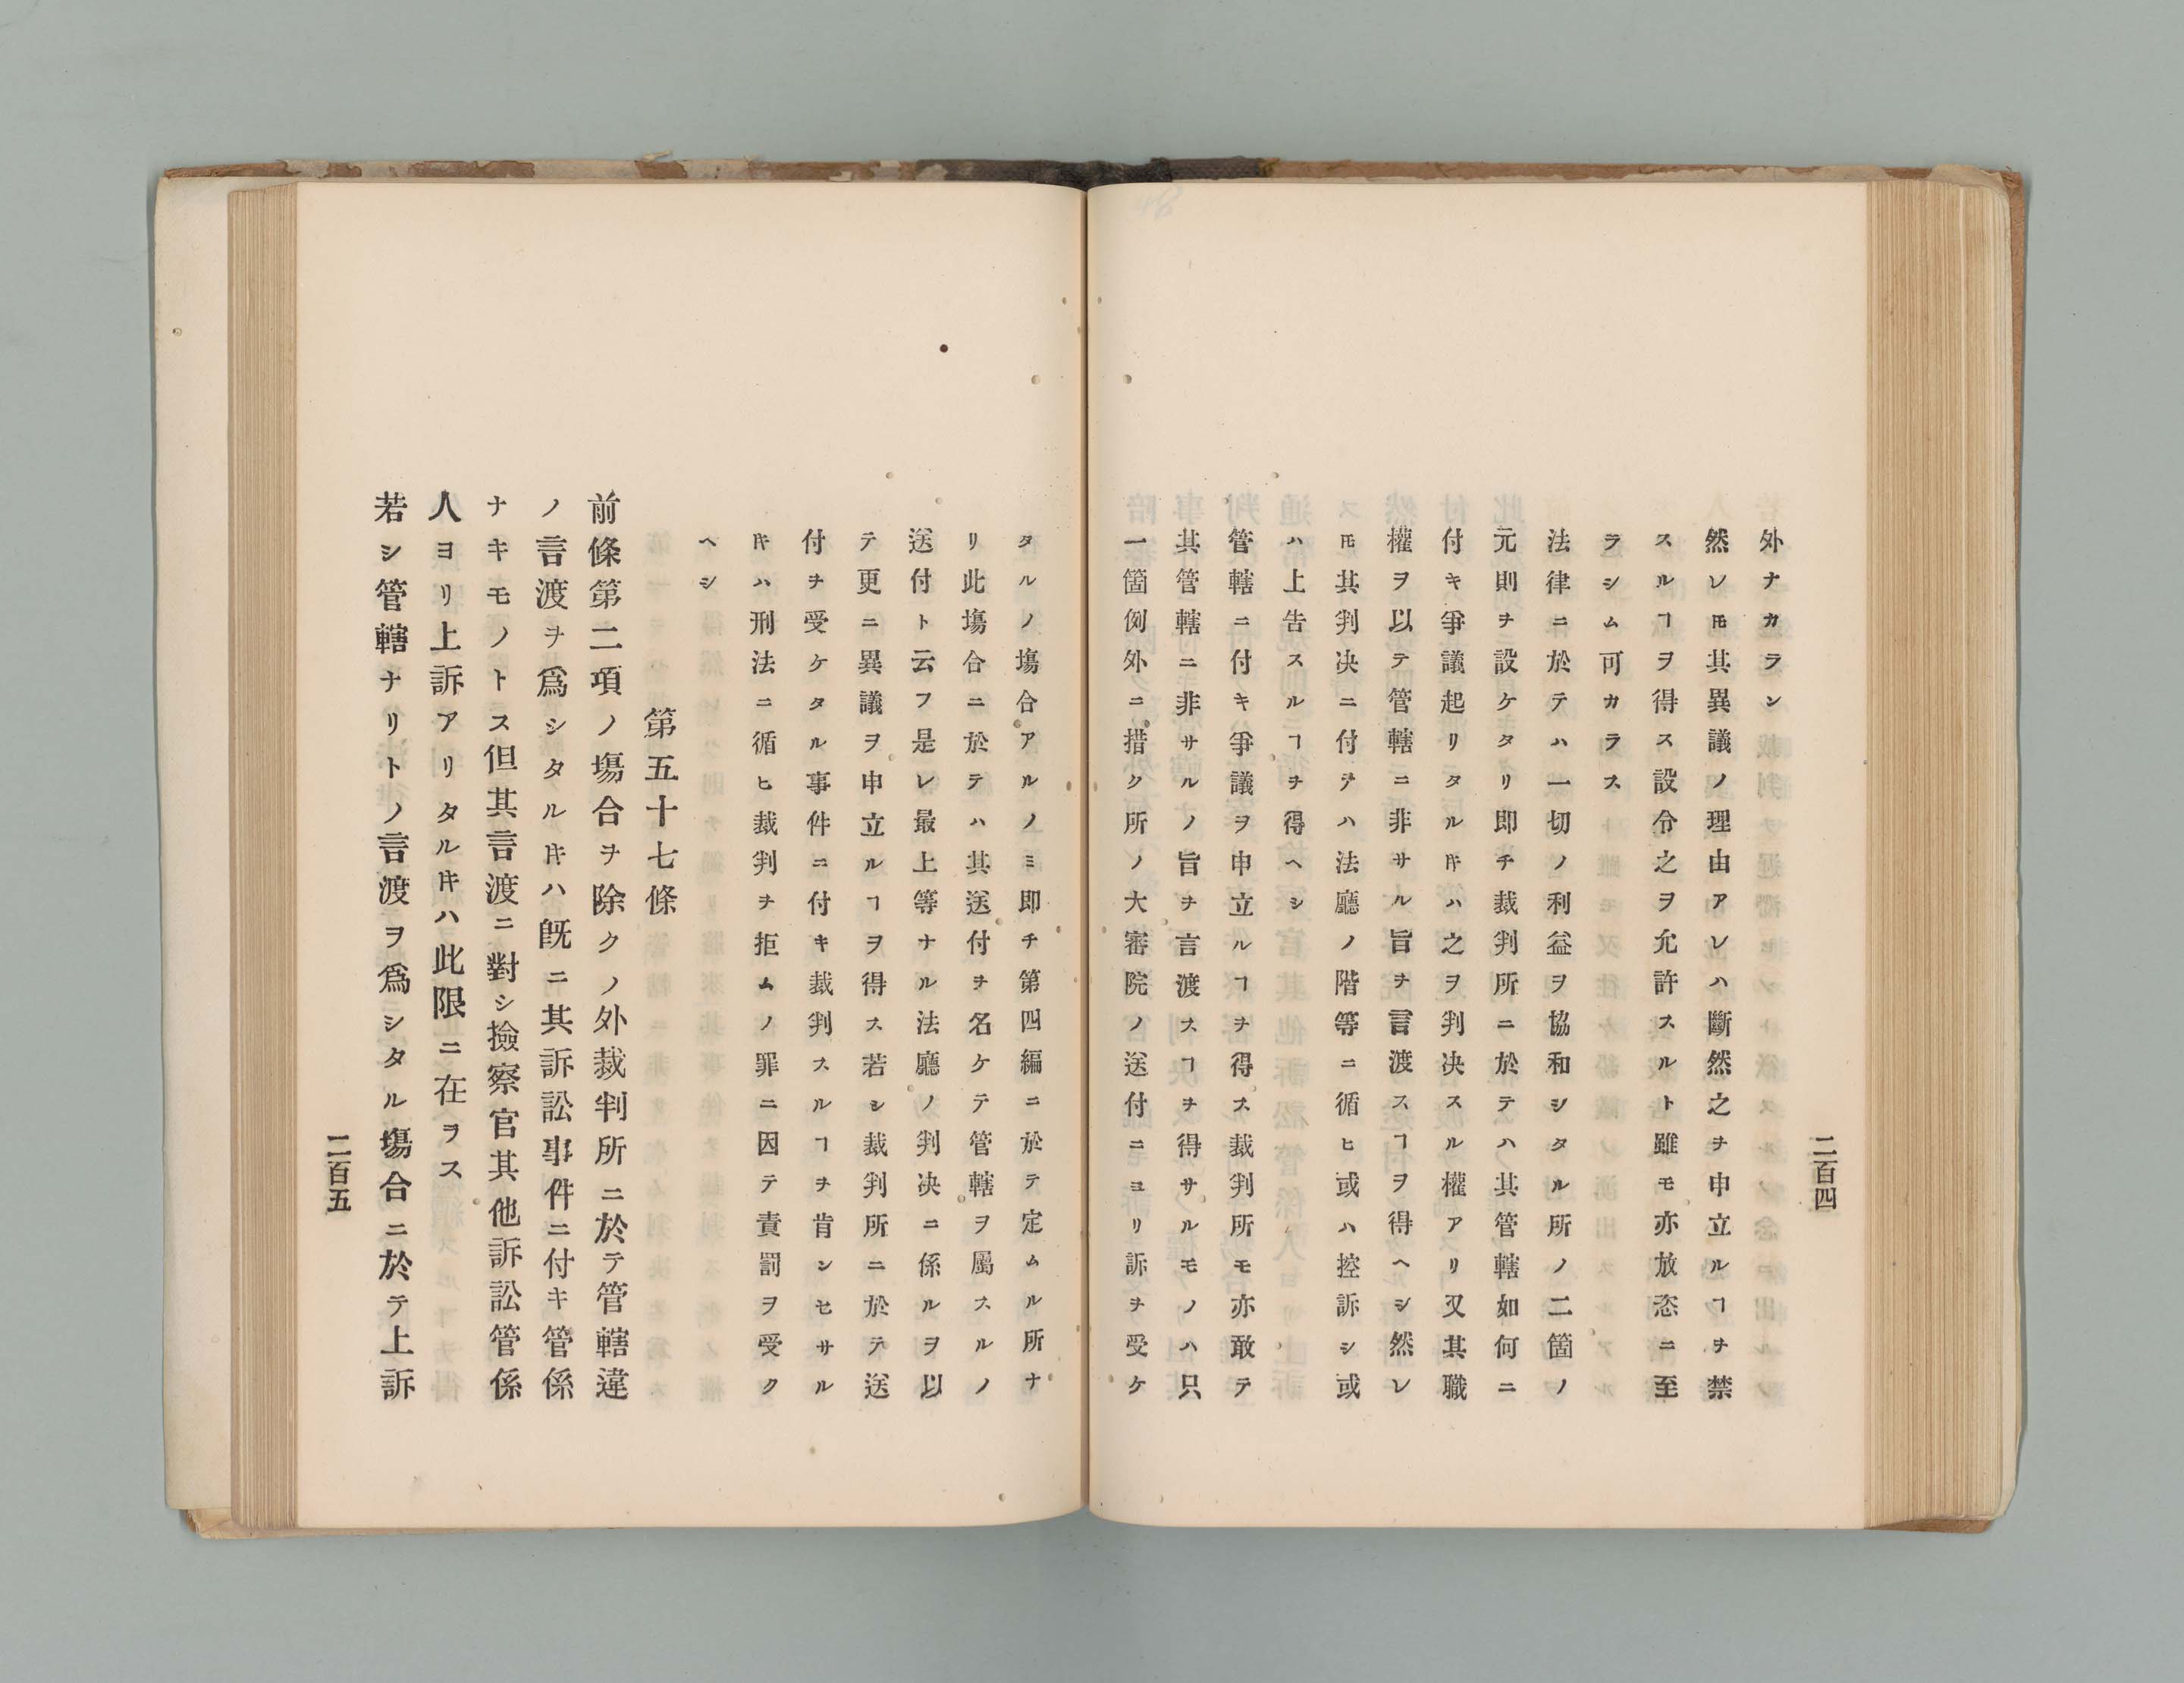 二百四
外ナカラン
然レ𪜈其異議ノ理由アレハ斷然之ヲ申立ルヿヲ禁
スルヿヲ得ス設令之ヲ允許スルト雖モ亦放恣ニ至
ラシム可カラス
法律ニ於テハ一切ノ利益ヲ協和シタル所ノ二箇ノ
元則ヲ設ケタリ即チ裁判所ニ於テハ其管轄如何ニ
付キ爭議起リタル𪜈ハ之ヲ判决スル權アリ又其職
權ヲ以テ管轄ニ非サル旨ヲ言渡スヿヲ得ヘシ然レ
𪜈其判决ニ付テハ法廳ノ階等ニ循ヒ或ハ控訴シ或
ハ上告スルヿヲ得ヘシ
管轄ニ付キ爭議ヲ申立ルヿヲ得ス裁判所モ亦敢テ
其管轄ニ非サルノ旨ヲ言渡スヿヲ得サルモノハ只
一箇例外ニ措ク所ノ大審院ノ送付ニヨリ訴ヲ受ケ
タルノ塲合アルノミ即チ第四編ニ於テ定ムル所ナ
リ此塲合ニ於テハ其送付ヲ名ケテ管轄ヲ屬スルノ
送付ト云フ是レ最上等ナル法廳ノ判决ニ係ルヲ以
テ更ニ異議ヲ申立ルヿヲ得ス若シ裁判所ニ於テ送
付ヲ受ケタル事件ニ付キ裁判スルヿヲ肯ンセサル
𪜈ハ刑法ニ循ヒ裁判ヲ拒ムノ罪ニ因テ責罰ヲ受ク
ヘシ
第五十七條
前條第二項ノ塲合ヲ除クノ外裁判所ニ於テ管轄違
ノ言渡ヲ爲シタル𪜈ハ既ニ其訴訟事件ニ付キ管係
ナキモノトス但其言渡ニ對シ撿察官其他訴訟管係
人ヨリ上訴アリタル𪜈ハ此限ニ在ラス
若シ管轄ナリトノ言渡ヲ爲シタル塲合ニ於テ上訴
二百五